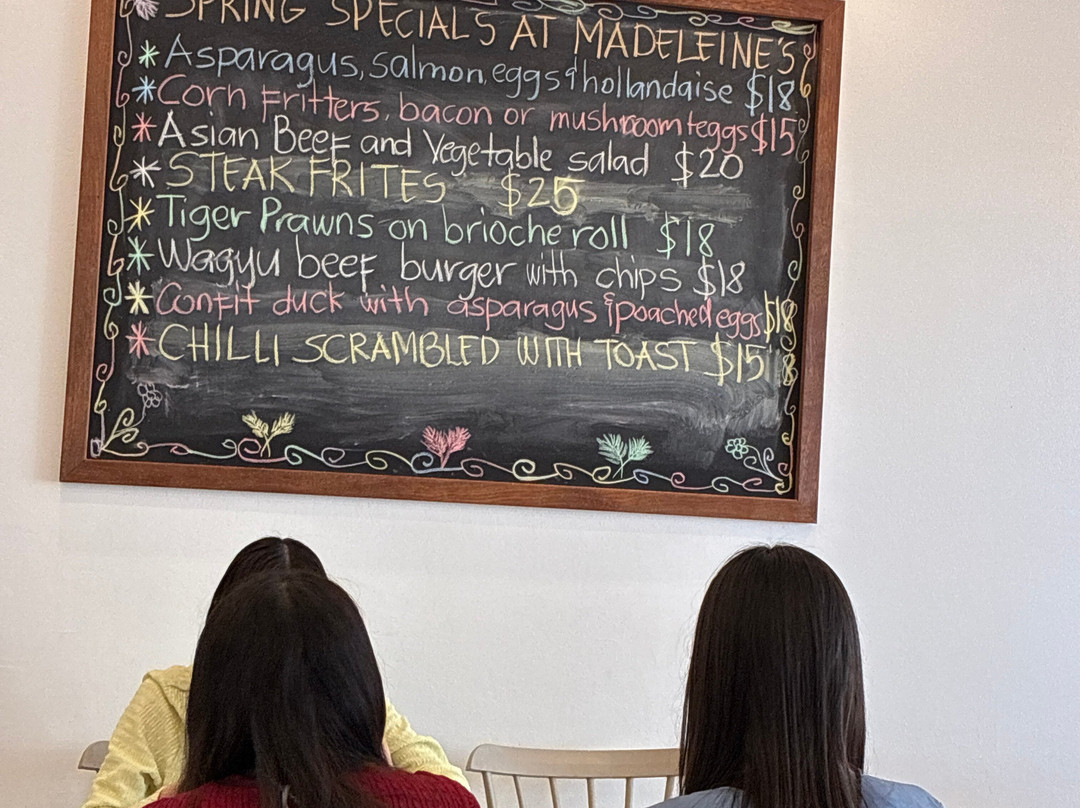 SPRING SPECIALS AT MADELEINE'S
* Asparagus, salmon, eggs & hollandaise $18
* Corn Fritters, bacon or mushroom + eggs $15
* Asian Beef and Vegetable salad $20
* STEAK FRITES $25
* Tiger Prawns on brioche roll $18
* Wagyu beef burger with chips $18
* Confit duck with asparagus & poached eggs $18
* CHILLI SCRAMBLED WITH TOAST $15